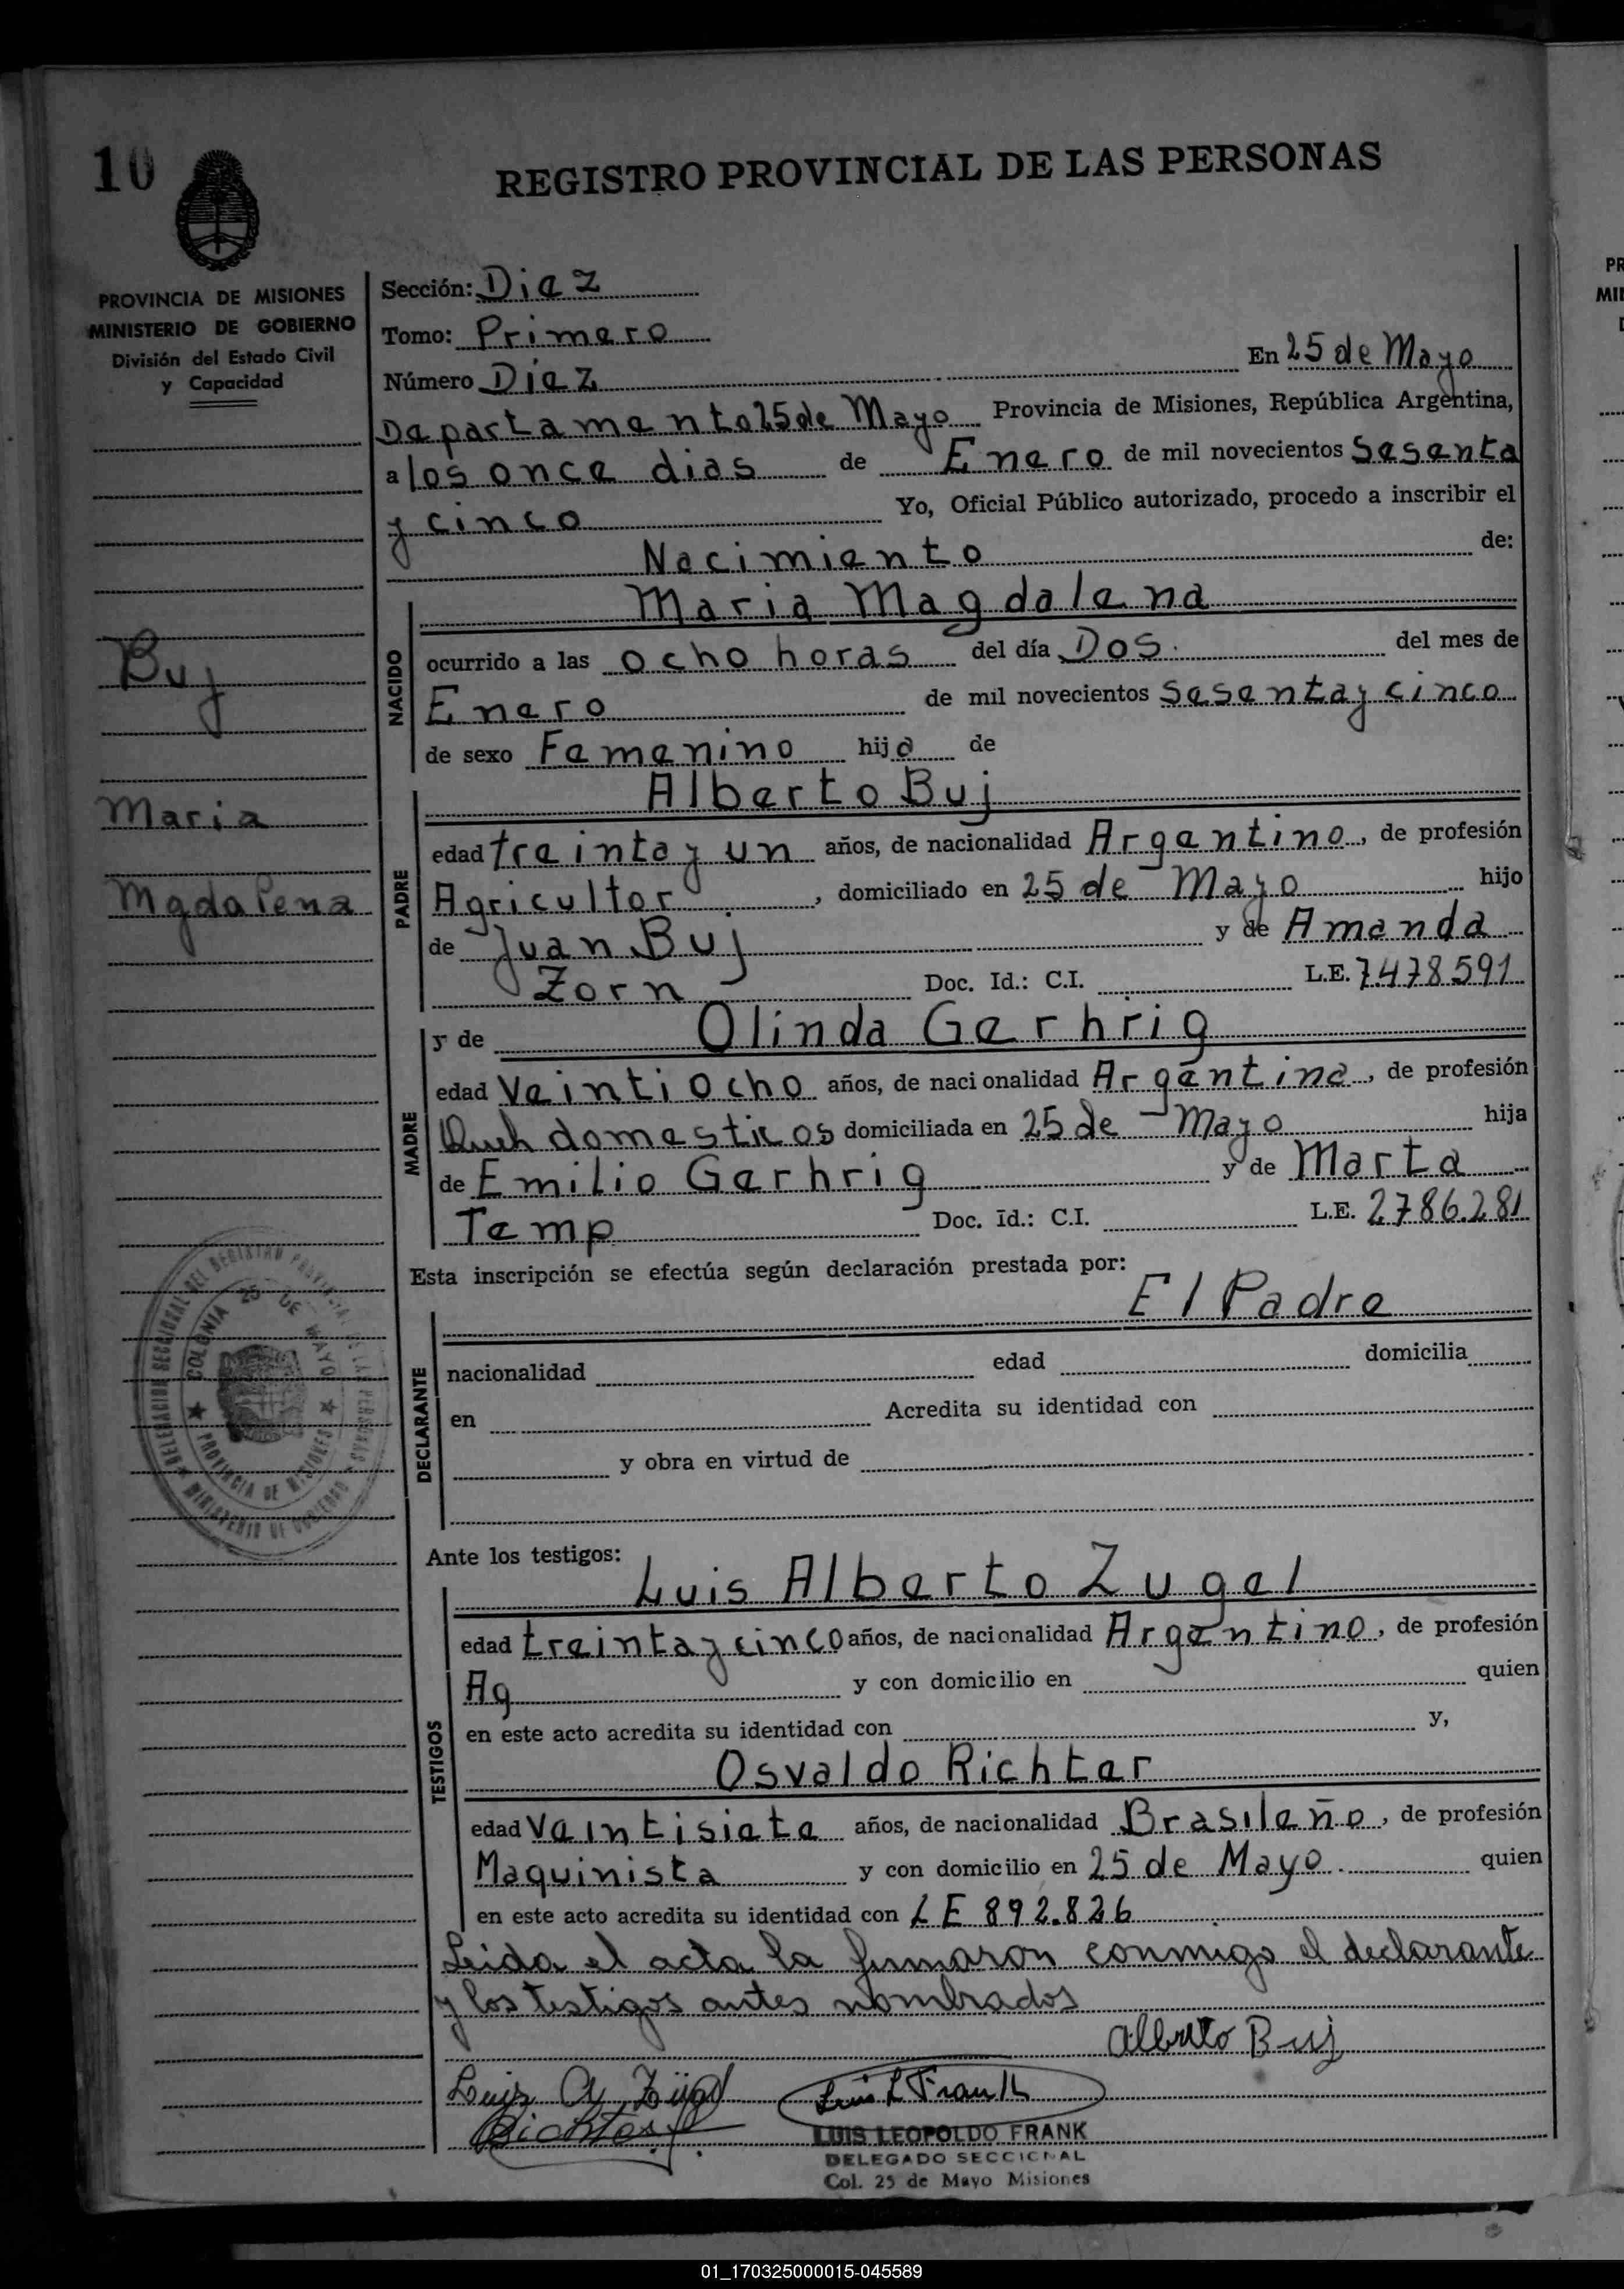 10
REGISTRO PROVINCIAL DE LAS PERSONAS
PROVINCIA DE MISIONES
MINISTERIO DE GOBIERNO
División del Estado Civil
y Capacidad
Buj
Maria
Mgdalena
Sección: Diez
Tomo: Primero
Número Diez En 25 de Mayo
Departamento 25 de Mayo Provincia de Misiones, República Argentina,
a los once dias de Enero de mil novecientos Sesenta
y cinco Yo, Oficial Público autorizado, procedo a inscribir el
Nacimiento de:
NACIDO
Maria Magdalena
ocurrido a las ocho horas del día Dos. del mes de
Enero de mil novecientos Sesenta y cinco
de sexo Femenino hija de
PADRE
Alberto Buj
edad treinta y un años, de nacionalidad Argentino, de profesión
Agricultor, domiciliado en 25 de Mayo hijo
de Juan Buj y de Amanda
Zorn Doc. Id.: C.I. L.E. 7.478.591
MADRE
y de Olinda Gerhrig
edad Veintiocho años, de nacionalidad Argentina, de profesión
Queh domesticos domiciliada en 25 de Mayo hija
de Emilio Gerhrig y de Marta
Temp Doc. Id.: C.I. L.E. 2.786.281
Esta inscripción se efectúa según declaración prestada por:
El Padre
DECLARANTE
nacionalidad edad domicilia
en Acredita su identidad con
y obra en virtud de
DELEGACION SECCIONAL DEL REGISTRO PROVINCIAL DE LAS PERSONAS
COLONIA 25 DE MAYO
PROVINCIA DE MISIONES
MINISTERIO DE GOBIERNO
Ante los testigos:
TESTIGOS
Luis Alberto Zugel
edad treinta y cinco años, de nacionalidad Argentino, de profesión
Ag y con domicilio en quien
en este acto acredita su identidad con y,
Osvaldo Richter
edad Veintisiete años, de nacionalidad Brasileño, de profesión
Maquinista y con domicilio en 25 de Mayo. quien
en este acto acredita su identidad con LE 892.826
Leida el acta la firmaron conmigo el declarante
y los testigos antes nombrados
Alberto Buj
Luis A Zügel
Luis L Frank
Richter
LUIS LEOPOLDO FRANK
DELEGADO SECCIONAL
Col. 25 de Mayo Misiones
01_170325000015-045589